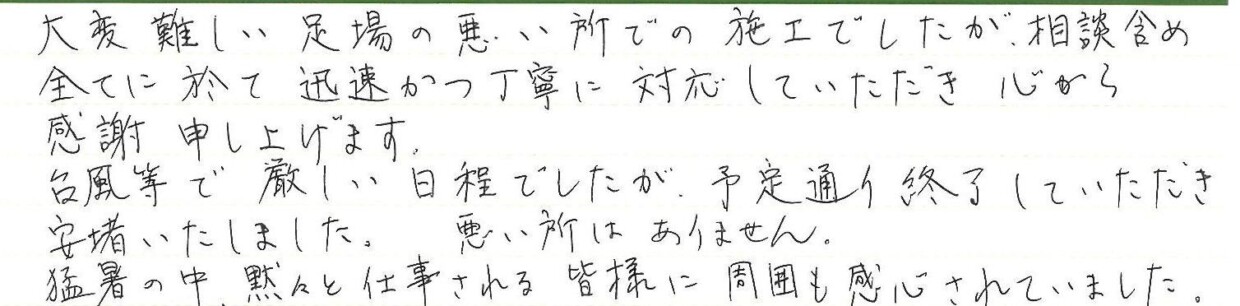 大変難しい足場の悪い所での施工でしたが、相談含め
全てに於て迅速かつ丁寧に対応していただき心から
感謝申し上げます。
台風等で厳しい日程でしたが、予定通り終了していただき
安堵いたしました。 悪い所はありません。
猛暑の中、黙々と仕事される皆様に周囲も感心されていました。